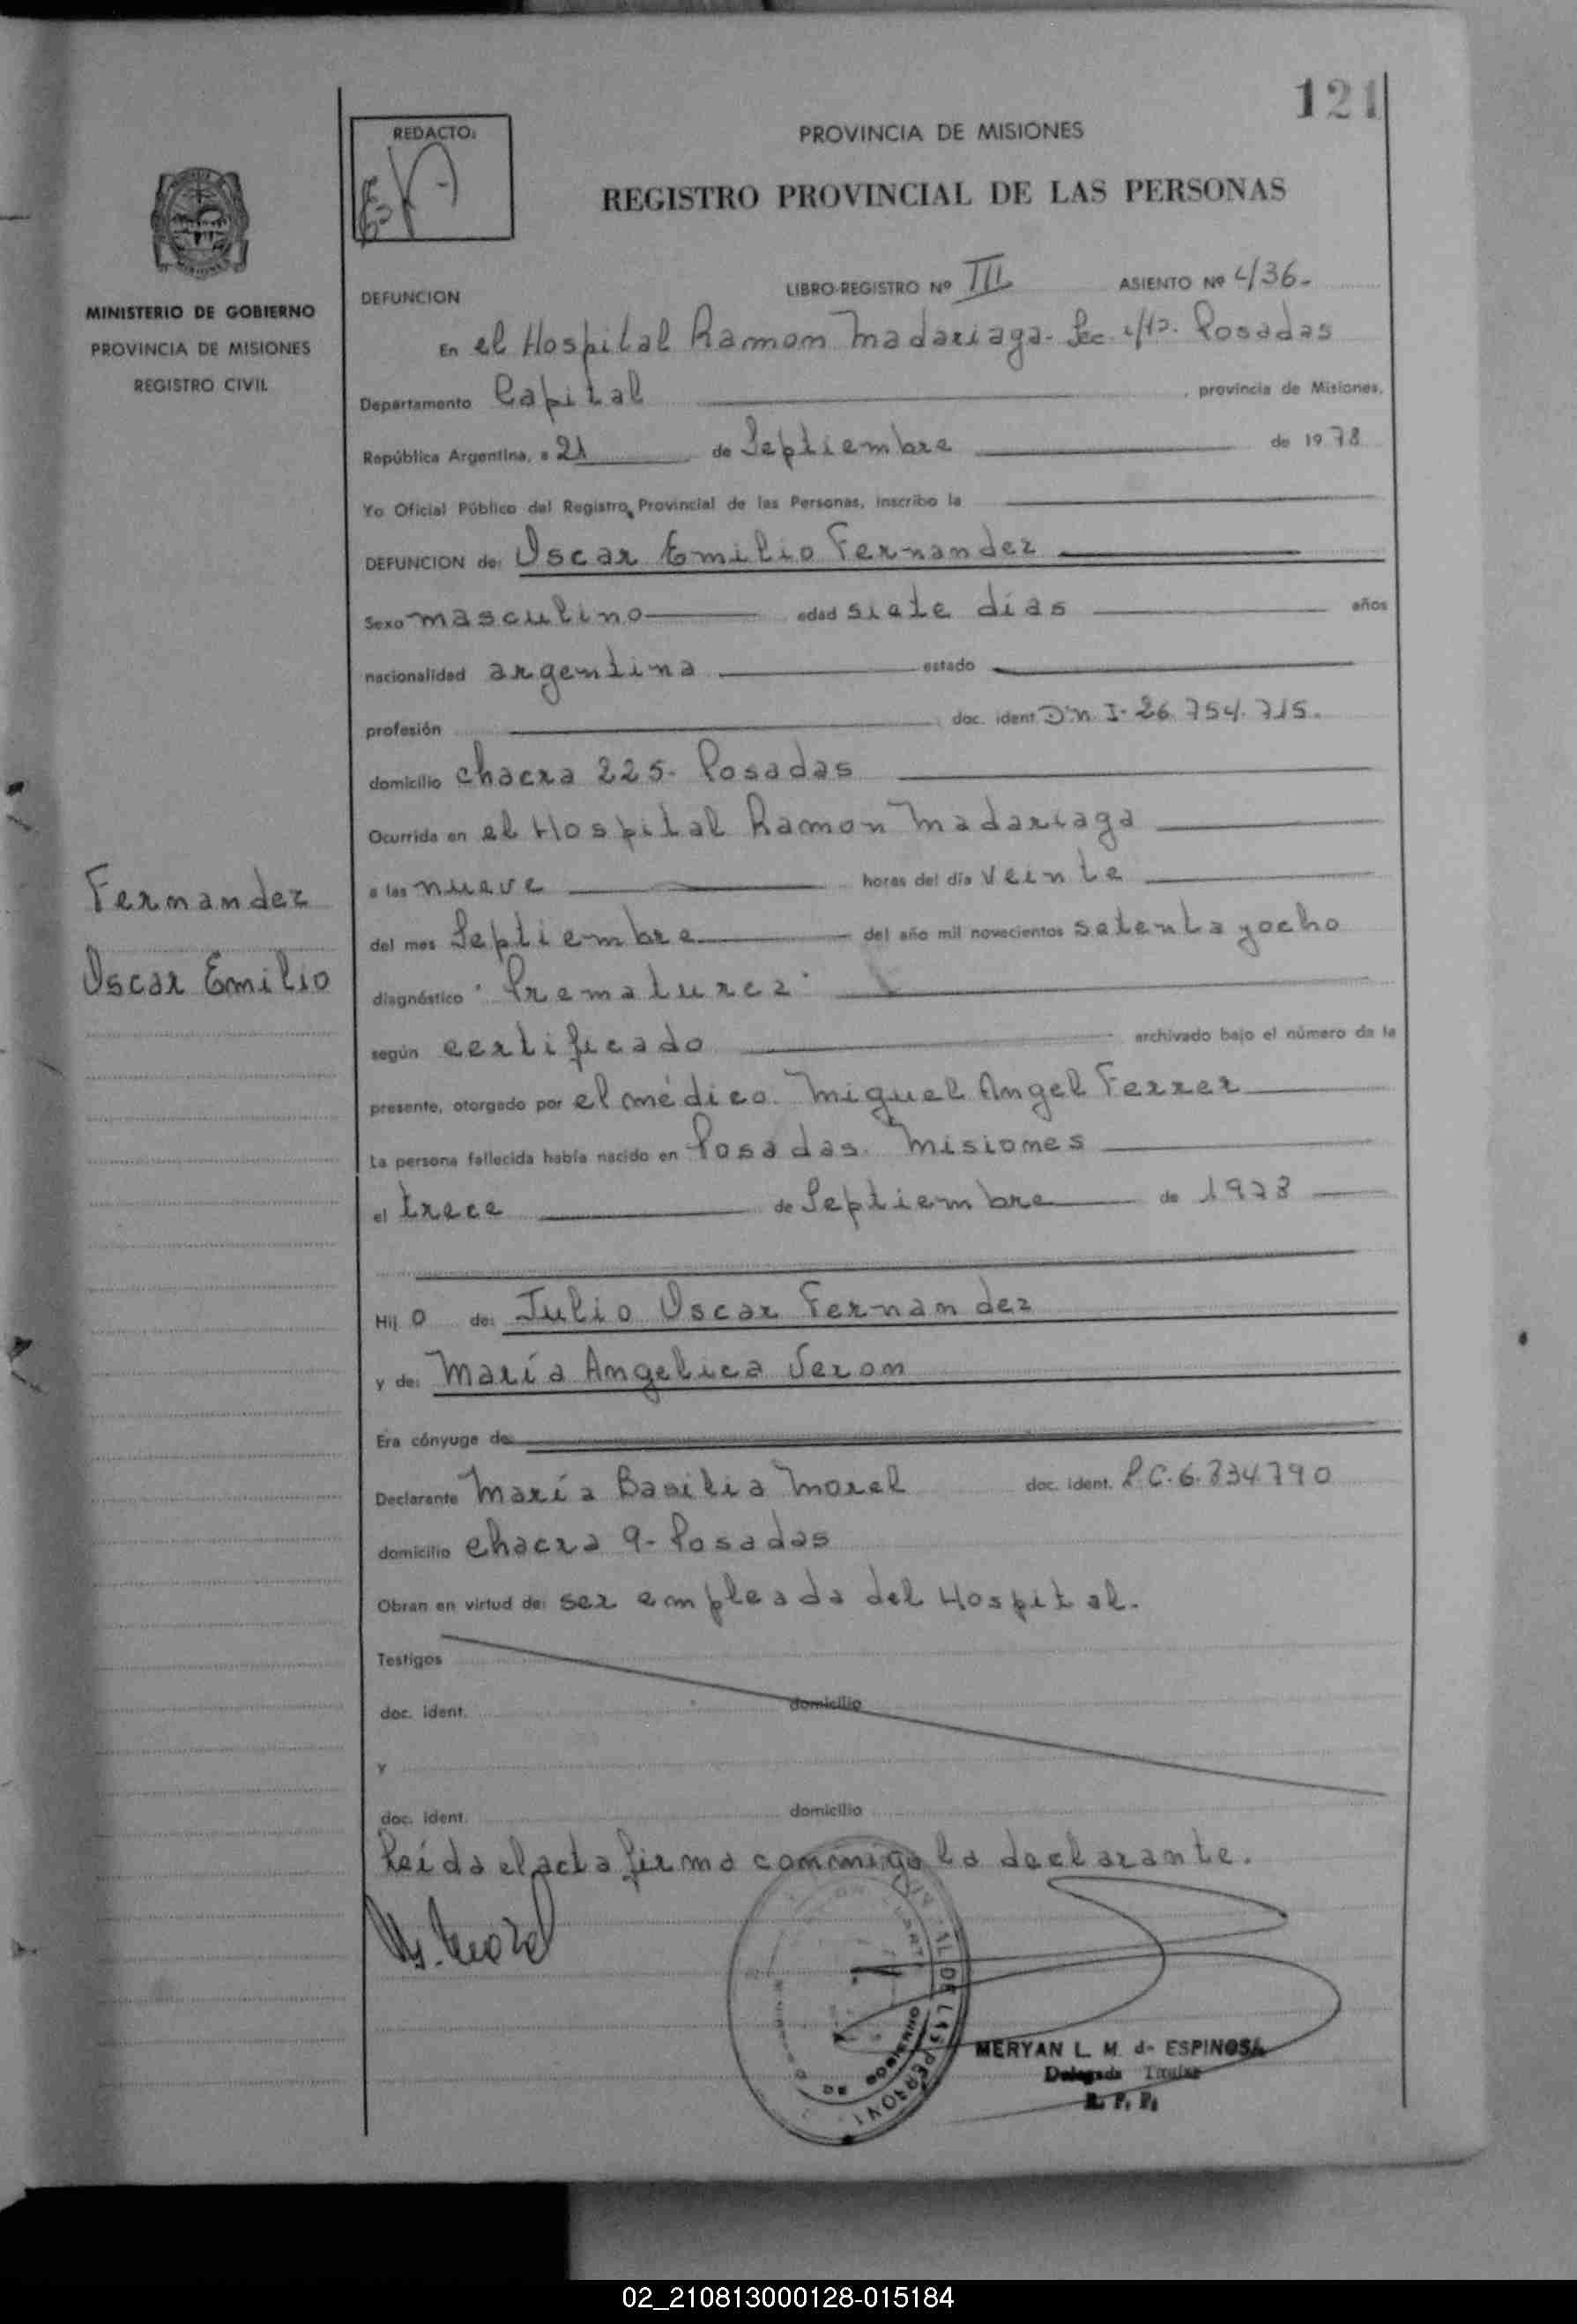 121
REDACTO:
PROVINCIA DE MISIONES
REGISTRO PROVINCIAL DE LAS PERSONAS
MINISTERIO DE GOBIERNO
PROVINCIA DE MISIONES
REGISTRO CIVIL
DEFUNCION LIBRO REGISTRO Nº III ASIENTO Nº 436-
En el Hospital Ramon Madariaga- Sec. 4ta. Posadas
Departamento Capital , provincia de Misiones,
República Argentina, a 21 de Septiembre de 1978
Yo Oficial Público del Registro Provincial de las Personas, inscribo la
DEFUNCION de: Oscar Emilio Fernandez
Sexo masculino edad siete días años
nacionalidad argentina estado
profesión doc. ident. D.N.I- 26.754.715.
domicilio chacra 225- Posadas
Ocurrida en el Hospital Ramon Madariaga
Fernandez
Oscar Emilio
a las nueve horas del día veinte
del mes Septiembre del año mil novecientos setenta y ocho
diagnóstico "Prematurez"
según certificado archivado bajo el número de la
presente, otorgado por el médico Miguel Angel Ferrer
La persona fallecida había nacido en Posadas. Misiones
el trece de Septiembre de 1978
Hij o de: Julio Oscar Fernandez
y de: María Angelica Veron
Era cónyuge de:
Declarante María Basilia Morel doc. ident. L.C. 6.334.790
domicilio chacra 9- Posadas
Obran en virtud de: ser empleada del Hospital.
Testigos
doc. ident. domicilio
y
doc. ident. domicilio
Leída el acta firma conmigo la declarante.
MERYAN L. M. de ESPINOSA
Delegada Titular
R. P. P.
02_210813000128-015184